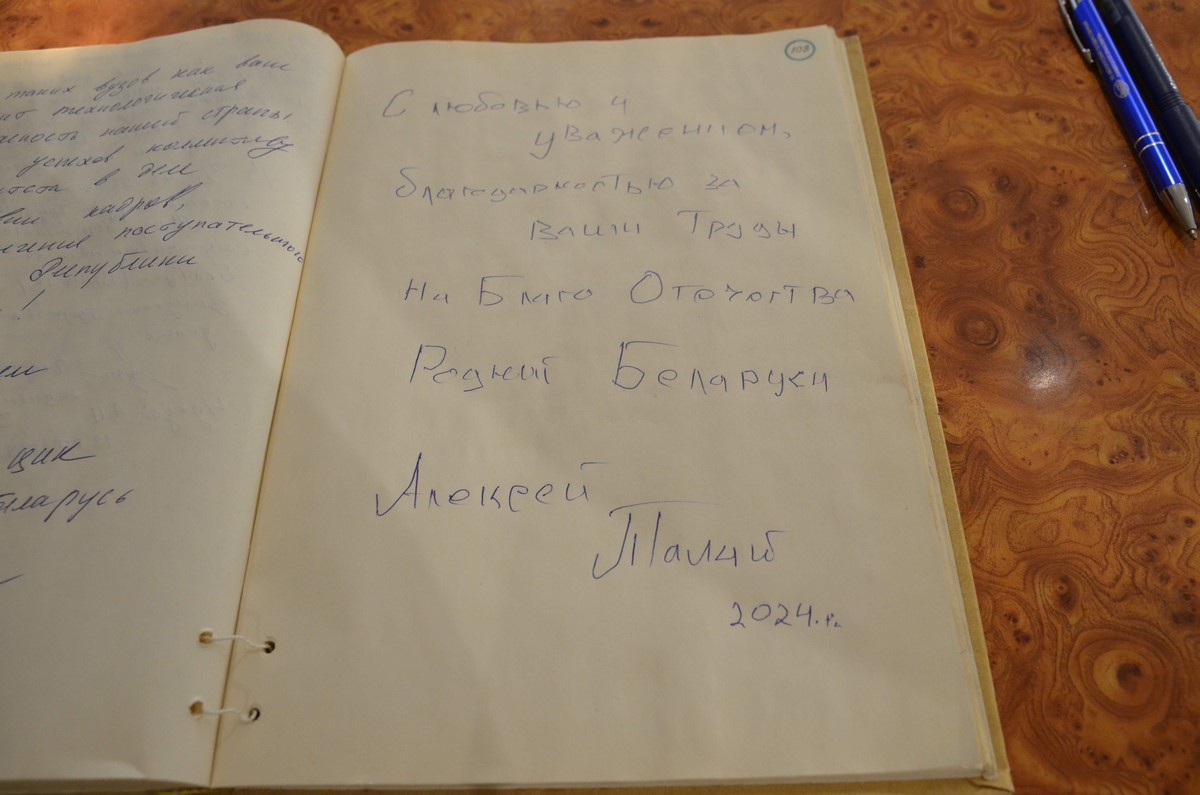 таких вузов как ваш
технологическая
нашей страны
успехов коллективу
в деле
кадров,
поступательного
Республики
!
щик
Беларусь
108
С любовью и
уважением,
благодарностью за
Ваши Труды
На Благо Отечества
Родной Беларуси
Алексей
Талай
2024 г.